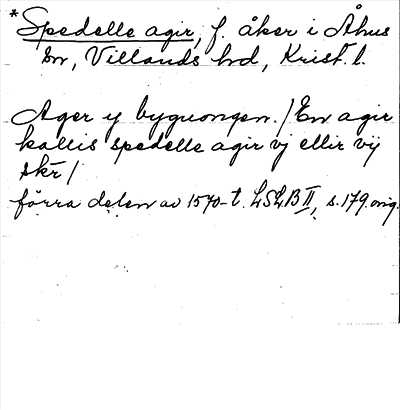 * Spedelle agir, f. åker i Åhus
sn, Villands hd, Krist. l.
Ager y byguongen. / En agir
kallis spedelle agir vj ellir vij
skr /
förra delen av 1570-t. LSLB II, s. 179. orig.